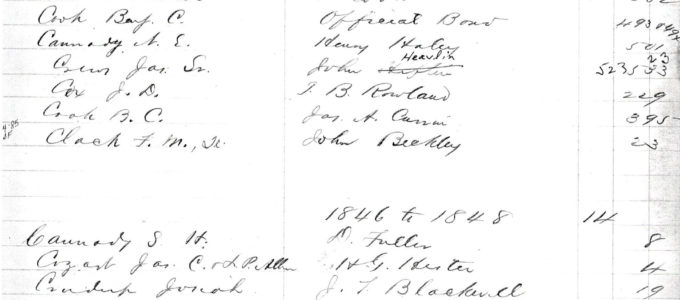 Cook Benj. C. Official Bond 493 494
Cannady N. E. Henry Haley 501
Crews Jas. Sr. John Heavlin 523 533 23
Cox J. D. T. B. Rowland 229
Cook B. C. Jas. A. Currin 395
Clack F. M., Tr. John Beckley 23
1846 to 1848 14
Cannady S. H. D. Fuller 8
Cozart Jas. C. & L. P. Allen H. G. Hester 4
Crudup Josiah J. T. Blackwell 19